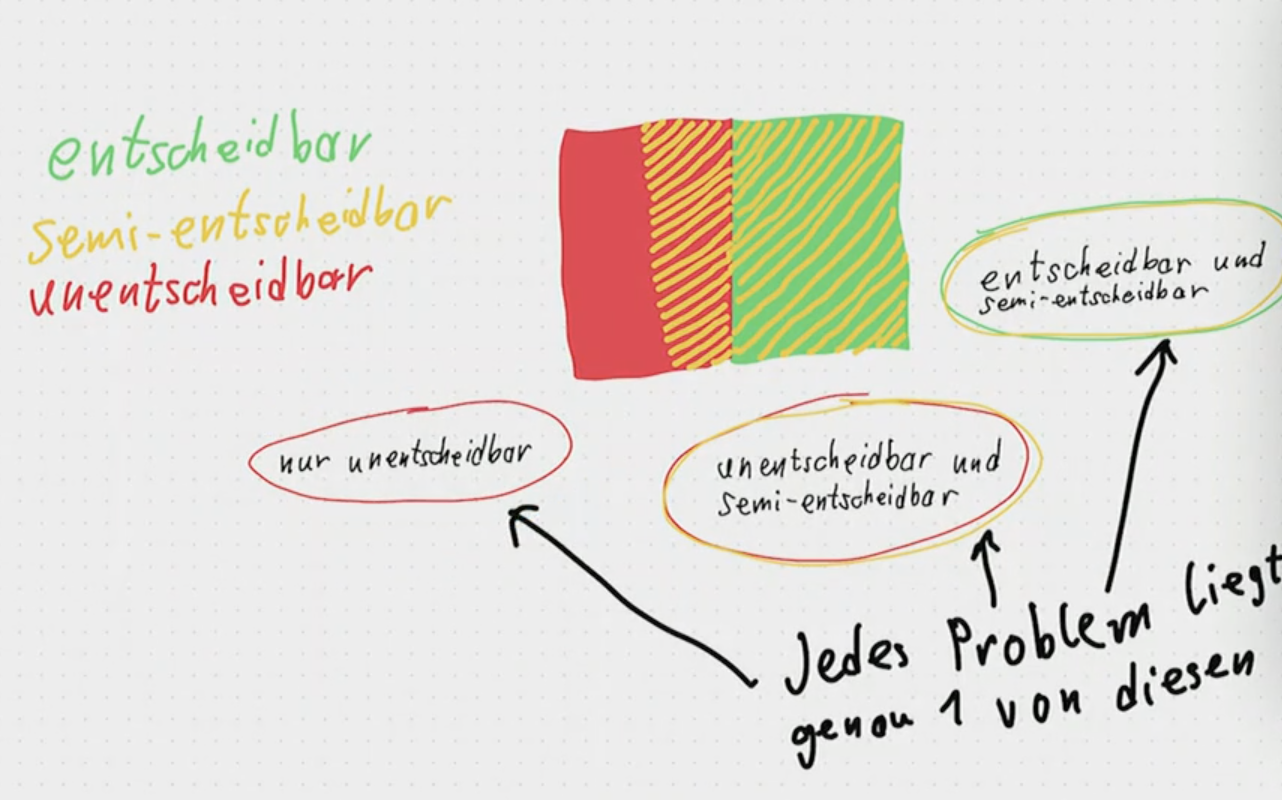 entscheidbar
semi-entscheidbar
unentscheidbar
entscheidbar und
semi-entscheidbar
nur unentscheidbar
unentscheidbar und
semi-entscheidbar
Jedes Problem liegt
genau 1 von diesen